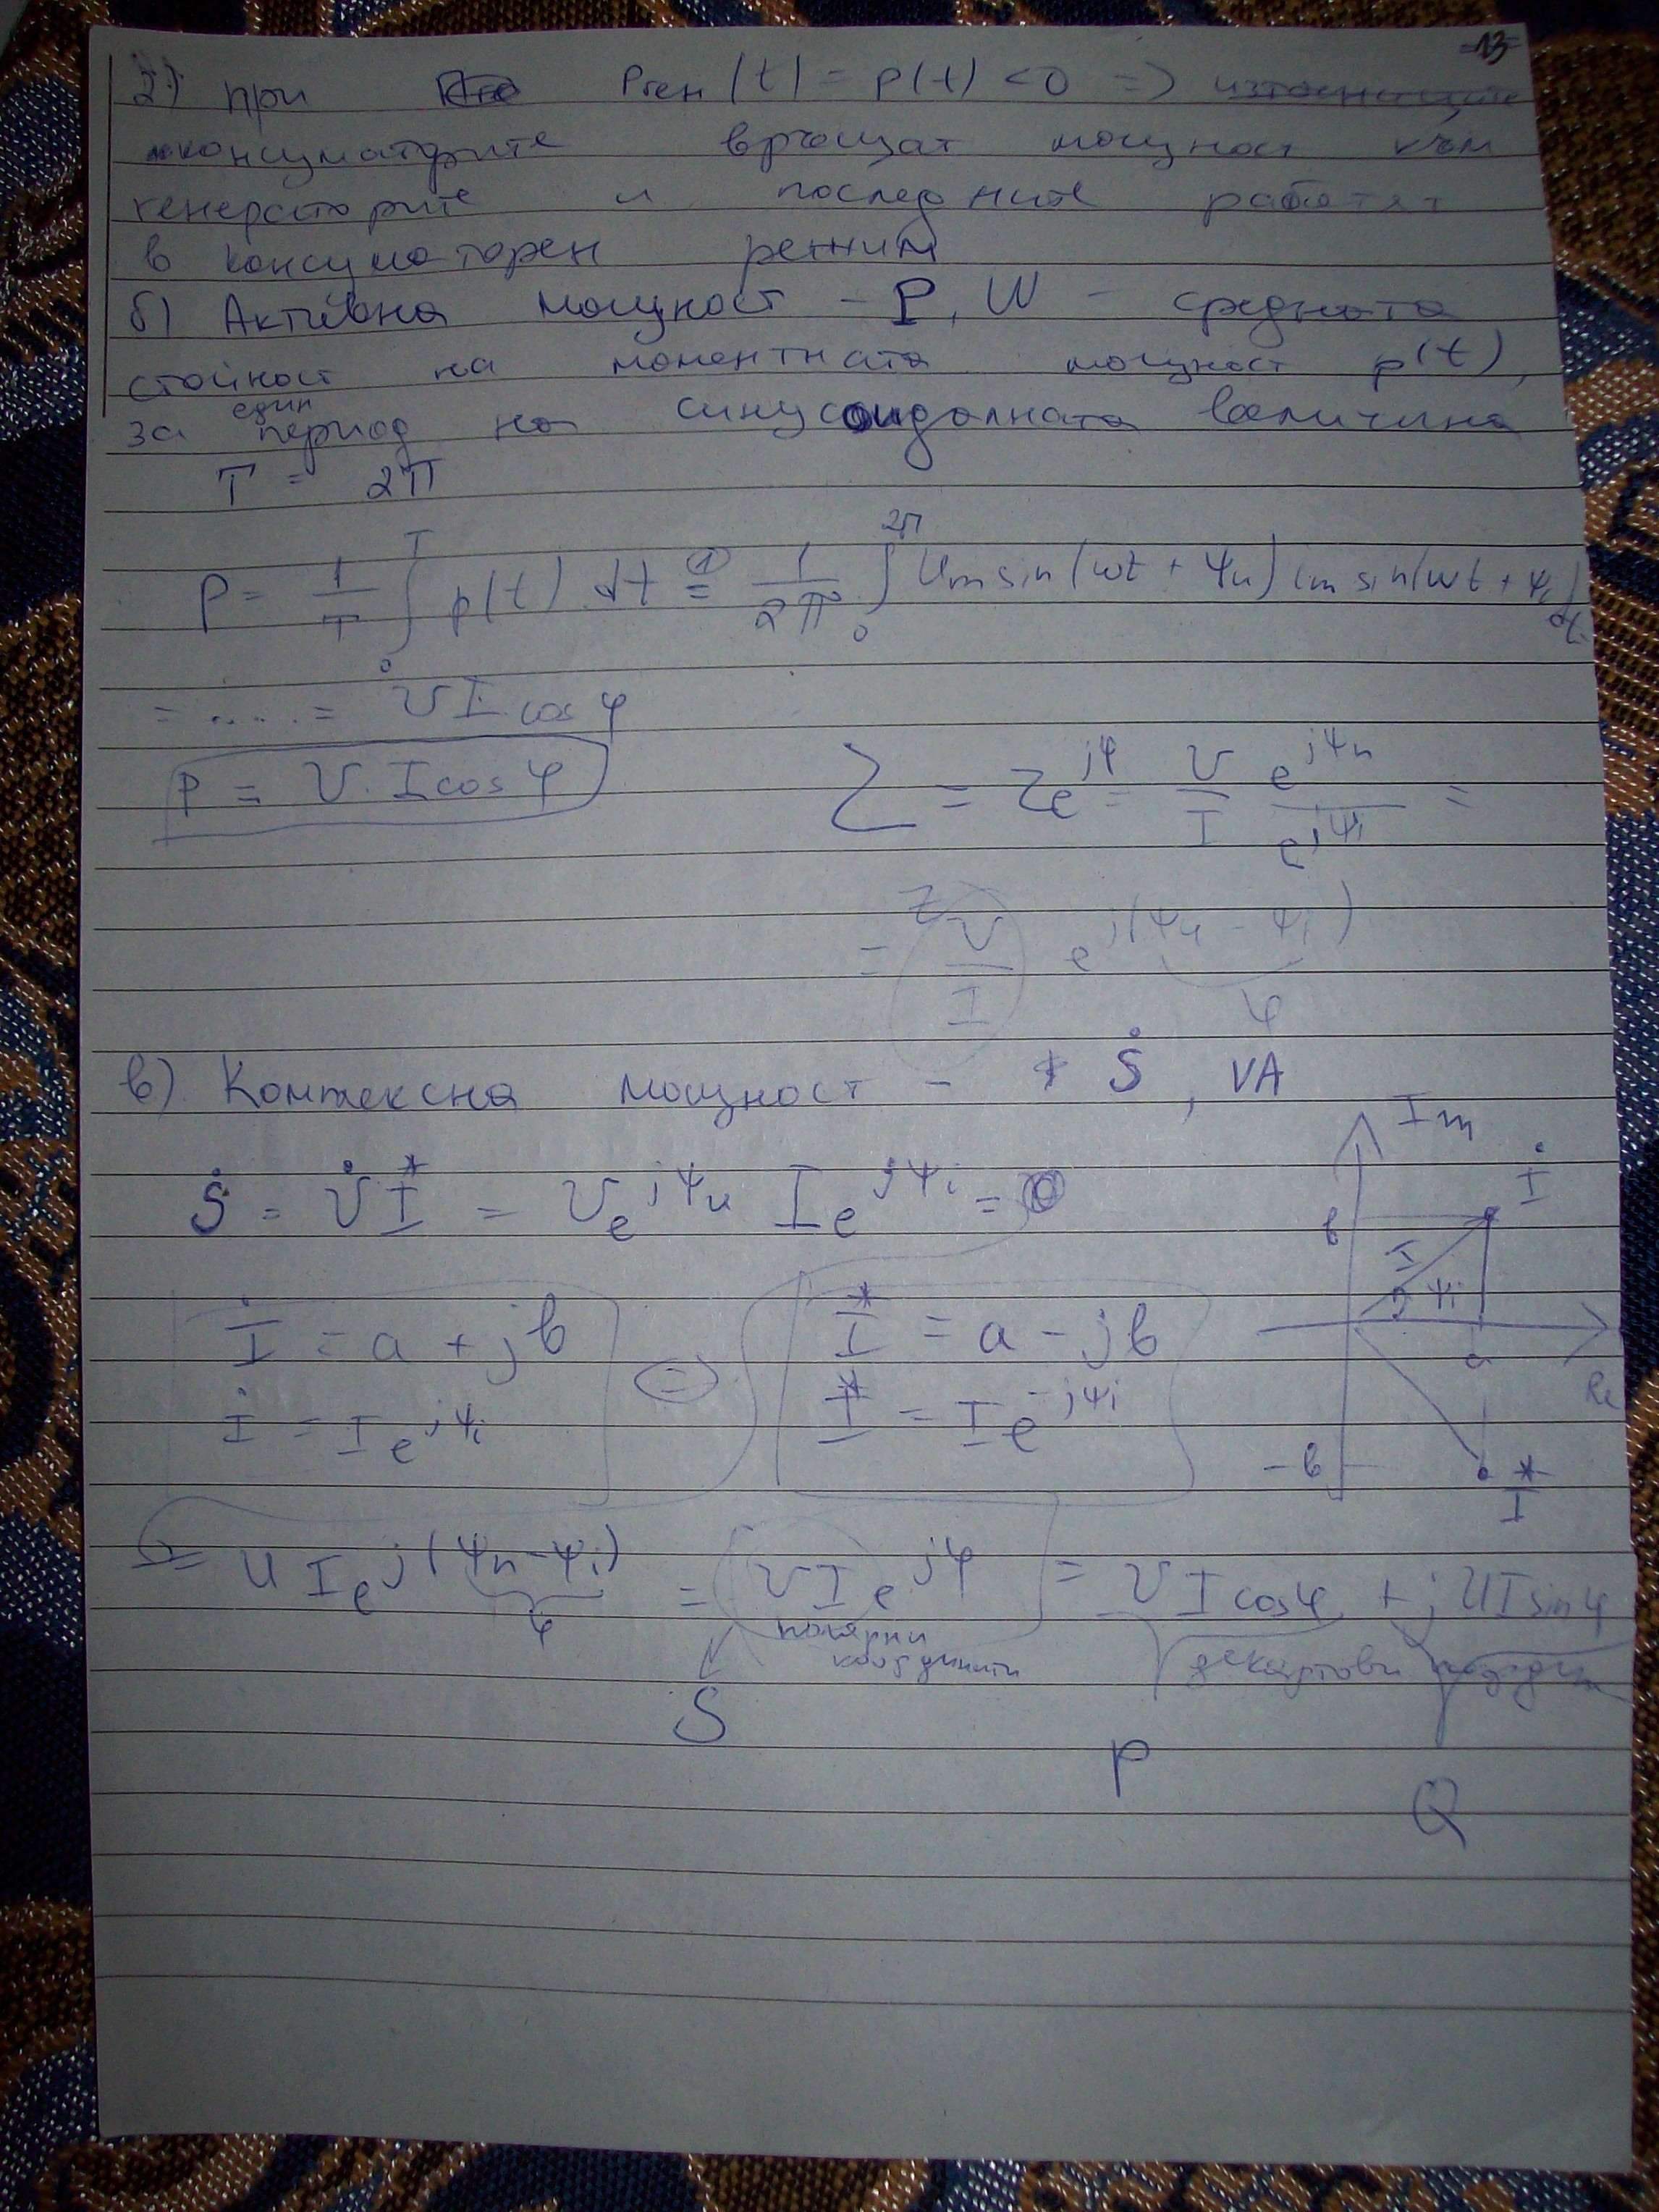 -13-
2) при Pген (t) = p(t) < 0 =>
консуматорите връщат мощност към
генераторите и последните работят
в консуматорен режим
б) Активна мощност - P, W - средната
стойност на моментната мощност p(t),
за един период на синусоидалната величина
T = 2π
P = 1/T ∫₀ᵀ p(t) dt ①= 1/2π ∫₀²π Um sin(ωt + Ψu) Im sin(ωt + Ψi) dt
= .... = UI cos φ
P = U.I cos φ
Z = Ze^jφ = U/I e^jΨu/e^jΨi =
= Z U/I e^j(Ψu - Ψi)
φ
в) Комплексна мощност - Ṡ, VA
Im
Ṡ = U̇ I* = Ue^jΨu Ie^jΨi =
İ
в
I
Ψi
İ = a + jв
I* = a - jв
a
Re
İ = Ie^jΨi
=
I* = Ie^-jΨi
-в
I*
= UIe^j(Ψu-Ψi) = UIe^jφ = UI cosφ + jUI sinφ
φ
полярни
координати
декартови
S
P
Q